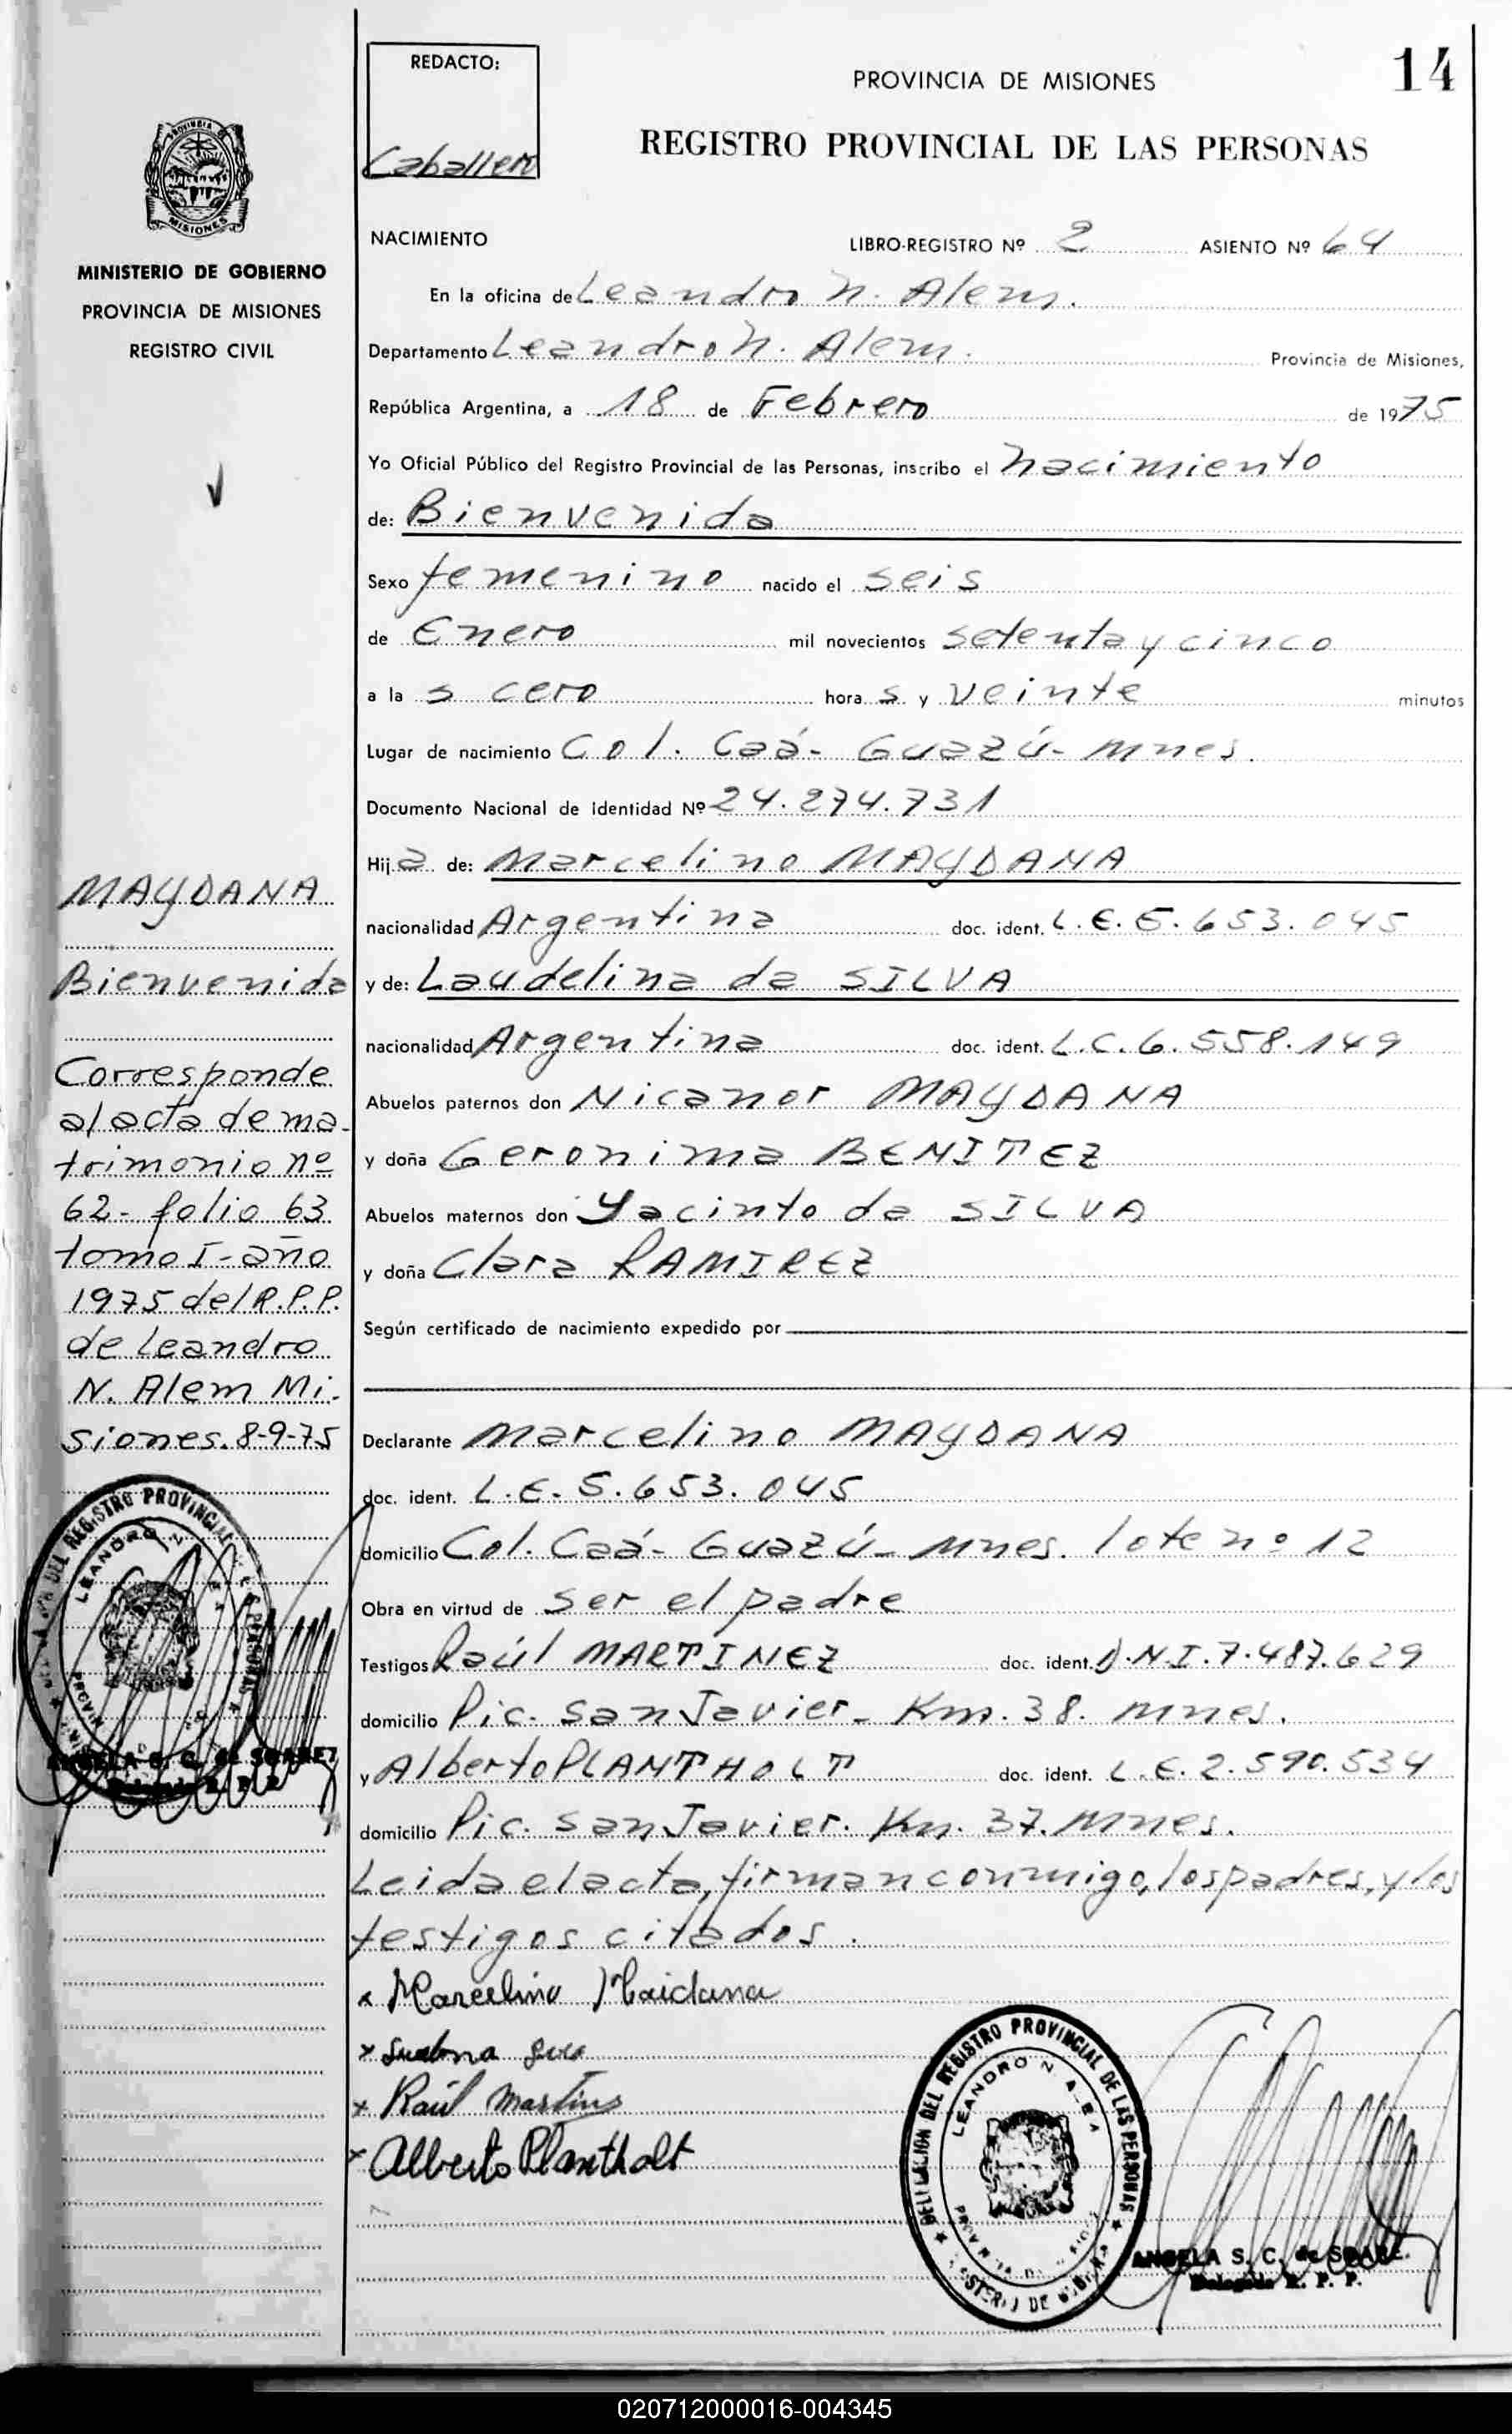 REDACTO:
Caballero
PROVINCIA DE MISIONES
14
REGISTRO PROVINCIAL DE LAS PERSONAS
PROVINCIA
MISIONES
MINISTERIO DE GOBIERNO
PROVINCIA DE MISIONES
REGISTRO CIVIL
NACIMIENTO
LIBRO-REGISTRO Nº 2 ASIENTO Nº 64
En la oficina de Leandro N. Alem.
Departamento Leandro N. Alem. Provincia de Misiones,
República Argentina, a 18 de Febrero de 1975
Yo Oficial Público del Registro Provincial de las Personas, inscribo el nacimiento
de: Bienvenida
Sexo femenino nacido el seis
de Enero mil novecientos setenta y cinco
a la s cero hora s y veinte minutos
Lugar de nacimiento Col. Caá-Guazú-Mnes.
Documento Nacional de identidad Nº 24.274.731
Hij a de: Marcelino MAYDANA
nacionalidad Argentina doc. ident. L.E. 5.653.045
y de: Laudelina da SILVA
nacionalidad Argentina doc. ident. L.C. 6.558.149
Abuelos paternos don Nicanor MAYDANA
y doña Geronima BENITEZ
Abuelos maternos don Yacinto da SILVA
y doña Clara RAMIREZ
Según certificado de nacimiento expedido por
Declarante Marcelino MAYDANA
doc. ident. L.E. 5.653.045
domicilio Col. Caá-Guazú-Mnes. lote nº 12
Obra en virtud de ser el padre
Testigos Raúl MARTINEZ doc. ident. D.N.I. 7.487.629
domicilio Pic. San Javier- Km. 38. Mnes.
y Alberto PLANTHOLT doc. ident. L.E. 2.590.534
domicilio Pic. San Javier. Km. 37. Mnes.
Leida el acta, firman conmigo, los padres, y los
testigos citados.
x Marcelino Maidana
x
x Raúl Martins
x Alberto Plantholt
MAYDANA
Bienvenida
Corresponde
al acta de ma-
trimonio nº
62- folio 63
tomo I- año
1975 del R.P.P.
de Leandro
N. Alem Mi-
siones. 8-9-75
DEL REGISTRO PROVINCIAL
LEANDRO N
ANGELA S. C. de SOAREZ
Delegada R. P. P.
DELEGACION DEL REGISTRO PROVINCIAL DE LAS PERSONAS
LEANDRO N. ALEM
ANGELA S. C. de SOARE
Delegada R. P. P.
020712000016-004345